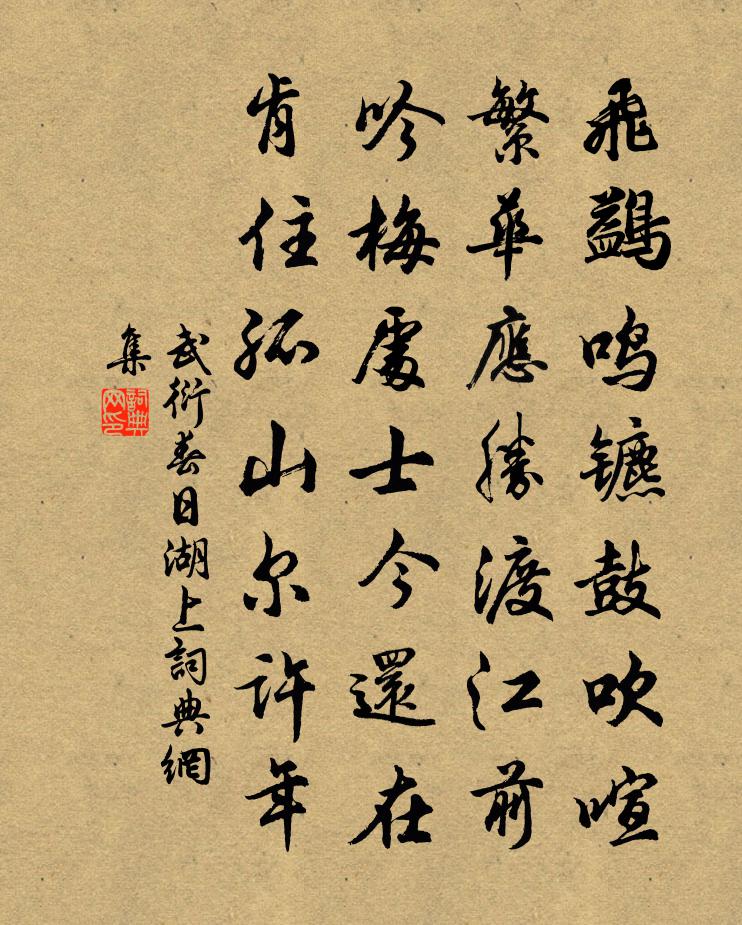 飛鷁鳴镳鼓吹喧
繁華應勝渡江前
吟梅處士今還在
肯住孤山尔許年
武衍春日湖上詞典網
集
詞典
网印